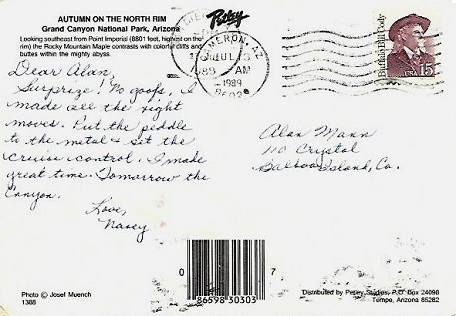 AUTUMN ON THE NORTH RIM
Grand Canyon National Park, Arizona
Looking southeast from Point Imperial (8801 feet, highest on the
rim) the Rocky Mountain Maple contrasts with colorful cliffs and
buttes within the mighty abyss.
Petley
CAMERON, AZ
JUL
AM
1989
Buffalo Bill Cody
USA 15
Dear Alan,
Surprize! No goofs, I
made all the right
moves. Put the peddle
to the metal & set the
cruise control. I made
great time. Tomorrow the
Canyon.
Love,
Nancy
Alan Mann
110 Crystal
Balboa Island, Ca.
0 86598 30303 7
Photo © Josef Muench
1388
Distributed by Petley Studios, P.O. Box 24098
Tempe, Arizona 85282